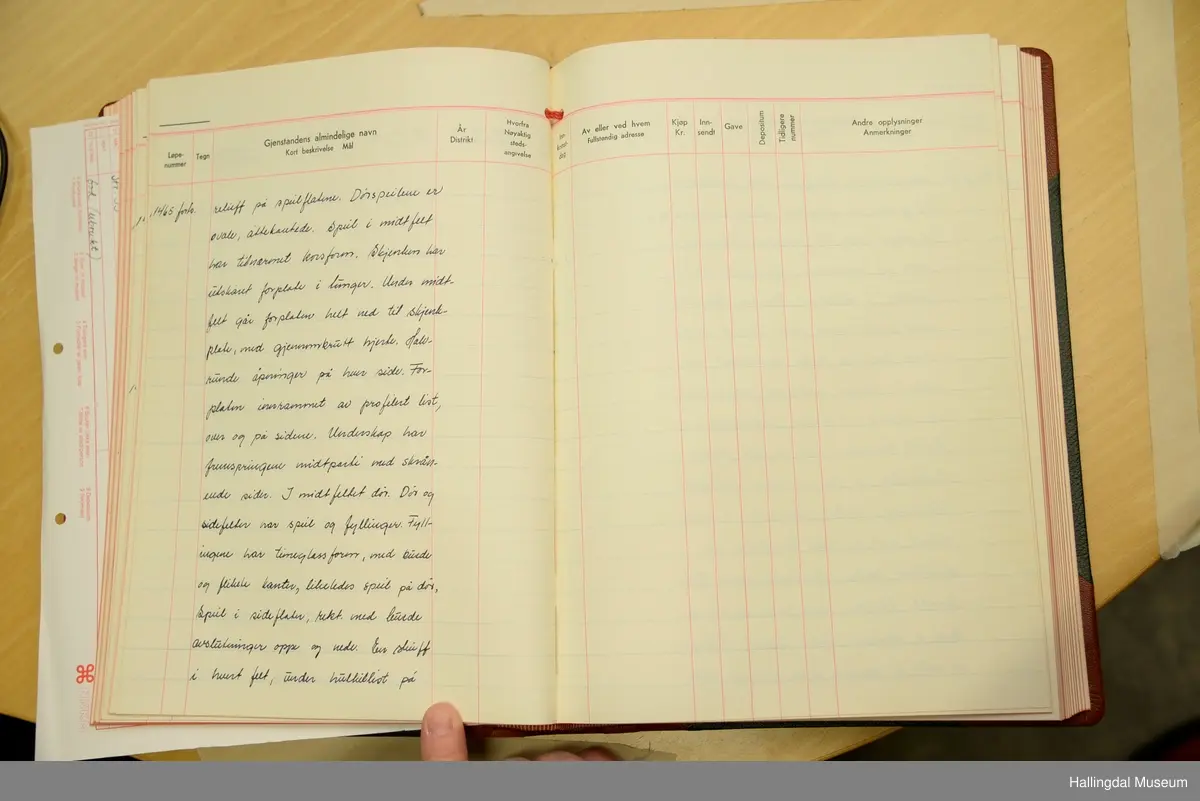 Løpe-
nummer
Tegn
Gjenstandens almindelige navn
Kort beskrivelse Mål
År
Distrikt
Hvorfra
Nøyaktig
steds-
angivelse
Av eller ved hvem
Fullstendig adresse
Kjøp
Kr.
Inn-
sendt
Gave
Depositum
Tidligere
nummer
Andre opplysninger
Anmerkninger
1465 forts. relieff på speilflatene. Dørspeilene er
ovale, åttekantede. Speil i midtfelt
har tilnærmet korsform. Skjenken har
utskåret forplate i tunger. Under midt-
felt går forplaten helt ned til skjenk-
plate, med gjennombrutt hjerte. Halv-
runde åpninger på hver side. For-
platen innrammet av profilert list,
over og på sidene. Underskap har
fremspringene midtparti med skrån-
ende sider. I midtfeltet dør. Dør og
sidefelter har speil og fyllinger. Fyll-
ingene har timeglassform, med buede
og flikede kanter, likeledes speil på dør,
Speil i sideflater, rekt. med buede
avslutninger oppe og nede. En skuff
i hvert felt, under hulkillist på
Hallingdal Museum